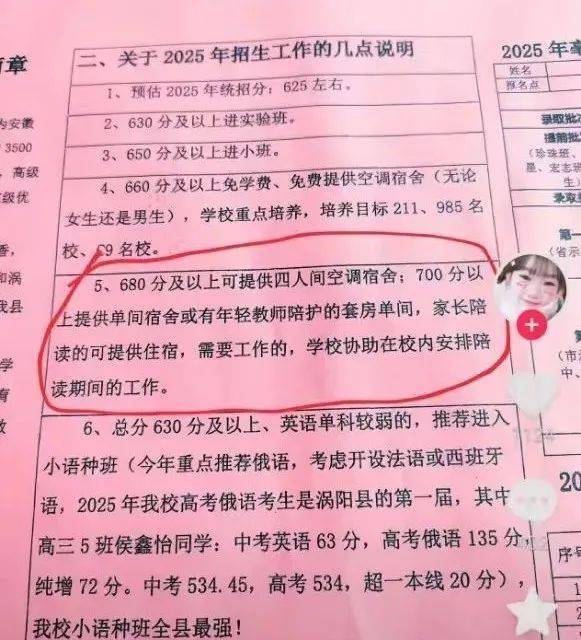 章
二、关于 2025 年招生工作的几点说明
1、预估 2025 年统招分：625 左右。
2、630 分及以上进实验班。
3、650 分及以上进小班。
4、660 分及以上免学费、免费提供空调宿舍（无论
女生还是男生），学校重点培养，培养目标 211、985 名
校、C9 名校。
5、680 分及以上可提供四人间空调宿舍；700 分以
上提供单间宿舍或有年轻教师陪护的套房单间，家长陪
读的可提供住宿，需要工作的，学校协助在校内安排陪
读期间的工作。
6、总分 630 分及以上、英语单科较弱的，推荐进入
小语种班（今年重点推荐俄语，考虑开设法语或西班牙
语，2025 年我校高考俄语考生是涡阳县的第一届，其中
高三 5 班侯鑫怡同学：中考英语 63 分，高考俄语 135 分，
纯增 72 分。中考 534.45，高考 534，超一本线 20 分），
我校小语种班全县最强！
安徽
3500
高级
级优
和涡
我县
学
2025 年
姓名
报名点
录取批
提前批
（珍珠班、
星、宏志班
生）
录取
第一
（省示
（市
中、
20
序号
1
2